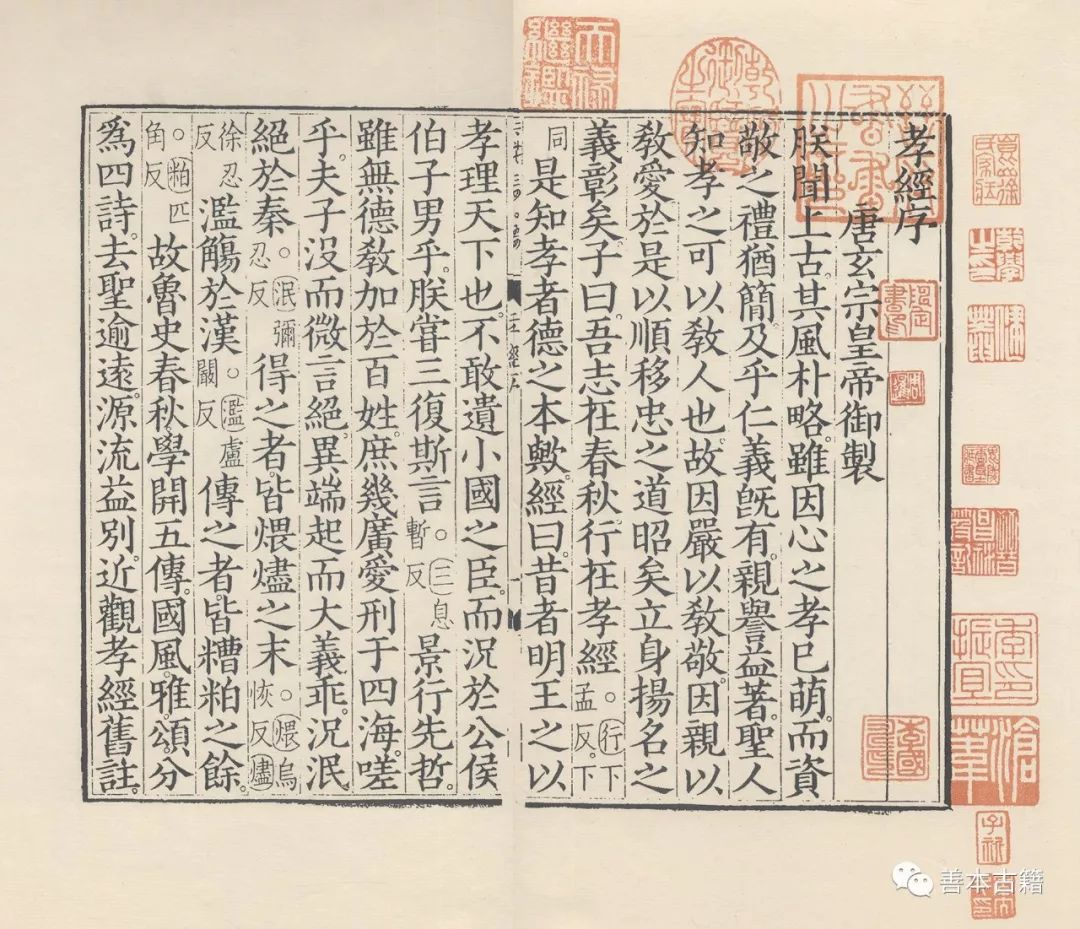 孝經序
唐玄宗皇帝御製
朕聞上古。其風朴略。雖因心之孝已萌。而資
敬之禮猶簡。及乎仁義旣有。親譽益著。聖人
知孝之可以敎人也。故因嚴以敎敬。因親以
敎愛。於是以順移忠之道昭矣。立身揚名之
義彰矣。子曰。吾志在春秋。行在孝經。行下孟反。下
同 是知孝者德之本歟。經曰。昔者明王之以
孝理天下也。不敢遺小國之臣。而況於公侯
伯子男乎。朕嘗三復斯言。三息暫反 景行先哲。
雖無德敎加於百姓。庶幾廣愛刑于四海。嗟
乎。夫子沒而微言絕。異端起而大義乖。況泯
絕於秦。泯彌忍反 得之者。皆煨燼之末。煨烏恢反燼
徐忍反 濫觴於漢。濫盧闞反 傳之者。皆糟粕之餘。
粕匹角反 故魯史春秋。學開五傳。國風。雅。頌。分
爲四詩。去聖逾遠。源流益別。近觀孝經舊註。
天祿繼鑑
季振宜印
滄葦
善本古籍